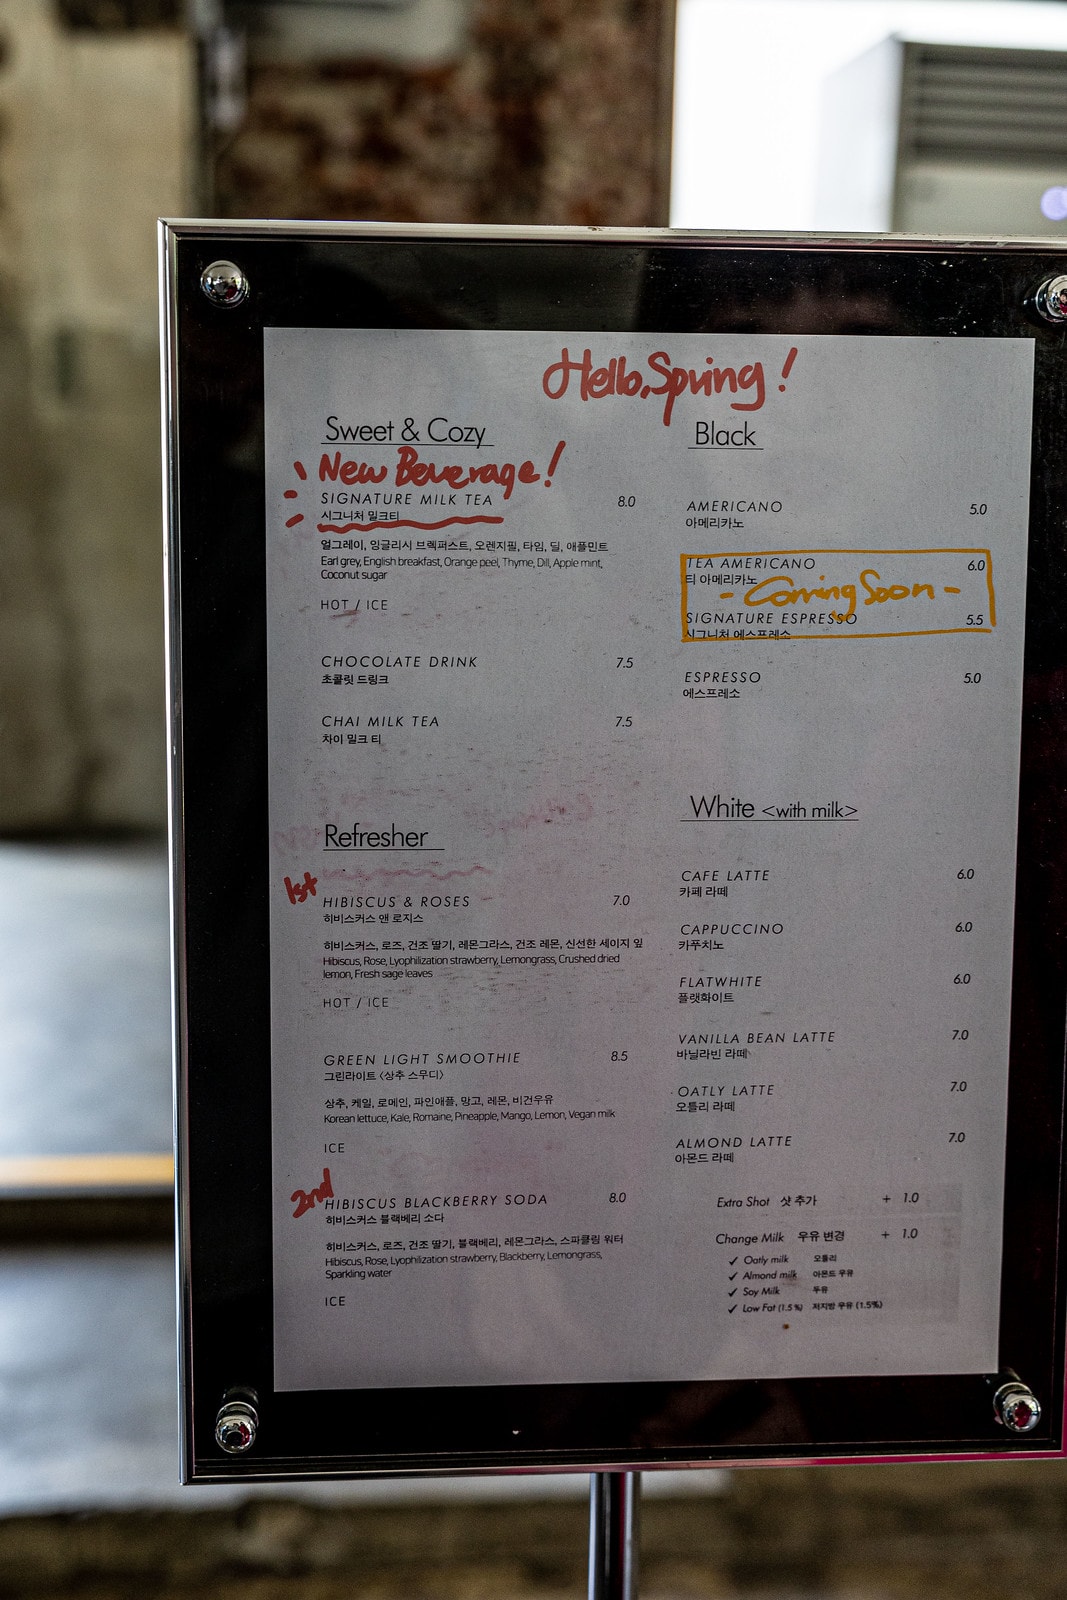 Hello, Spring!
Sweet & Cozy
New Beverage!
SIGNATURE MILK TEA 8.0
시그니처 밀크티
얼그레이, 잉글리시 브렉퍼스트, 오렌지필, 타임, 딜, 애플민트
Earl grey, English breakfast, Orange peel, Thyme, Dill, Apple mint,
Coconut sugar
HOT / ICE
CHOCOLATE DRINK 7.5
초콜릿 드링크
CHAI MILK TEA 7.5
차이 밀크 티
Refresher
1st
HIBISCUS & ROSES 7.0
히비스커스 앤 로지스
히비스커스, 로즈, 건조 딸기, 레몬그라스, 건조 레몬, 신선한 세이지 잎
Hibiscus, Rose, Lyophilization strawberry, Lemongrass, Crushed dried
lemon, Fresh sage leaves
HOT / ICE
GREEN LIGHT SMOOTHIE 8.5
그린라이트 <상추 스무디>
상추, 케일, 로메인, 파인애플, 망고, 레몬, 비건우유
Korean lettuce, Kale, Romaine, Pineapple, Mango, Lemon, Vegan milk
ICE
2nd
HIBISCUS BLACKBERRY SODA 8.0
히비스커스 블랙베리 소다
히비스커스, 로즈, 건조 딸기, 블랙베리, 레몬그라스, 스파클링 워터
Hibiscus, Rose, Lyophilization strawberry, Blackberry, Lemongrass,
Sparkling water
ICE
Black
AMERICANO 5.0
아메리카노
TEA AMERICANO 6.0
티 아메리카노
- Coming Soon -
SIGNATURE ESPRESSO 5.5
시그니처 에스프레소
ESPRESSO 5.0
에스프레소
White <with milk>
CAFE LATTE 6.0
카페 라떼
CAPPUCCINO 6.0
카푸치노
FLATWHITE 6.0
플랫화이트
VANILLA BEAN LATTE 7.0
바닐라빈 라떼
OATLY LATTE 7.0
오틀리 라떼
ALMOND LATTE 7.0
아몬드 라떼
Extra Shot 샷 추가 + 1.0
Change Milk 우유 변경 + 1.0
✓ Oatly milk 오틀리
✓ Almond milk 아몬드 우유
✓ Soy Milk 두유
✓ Low Fat (1.5%) 저지방 우유 (1.5%)